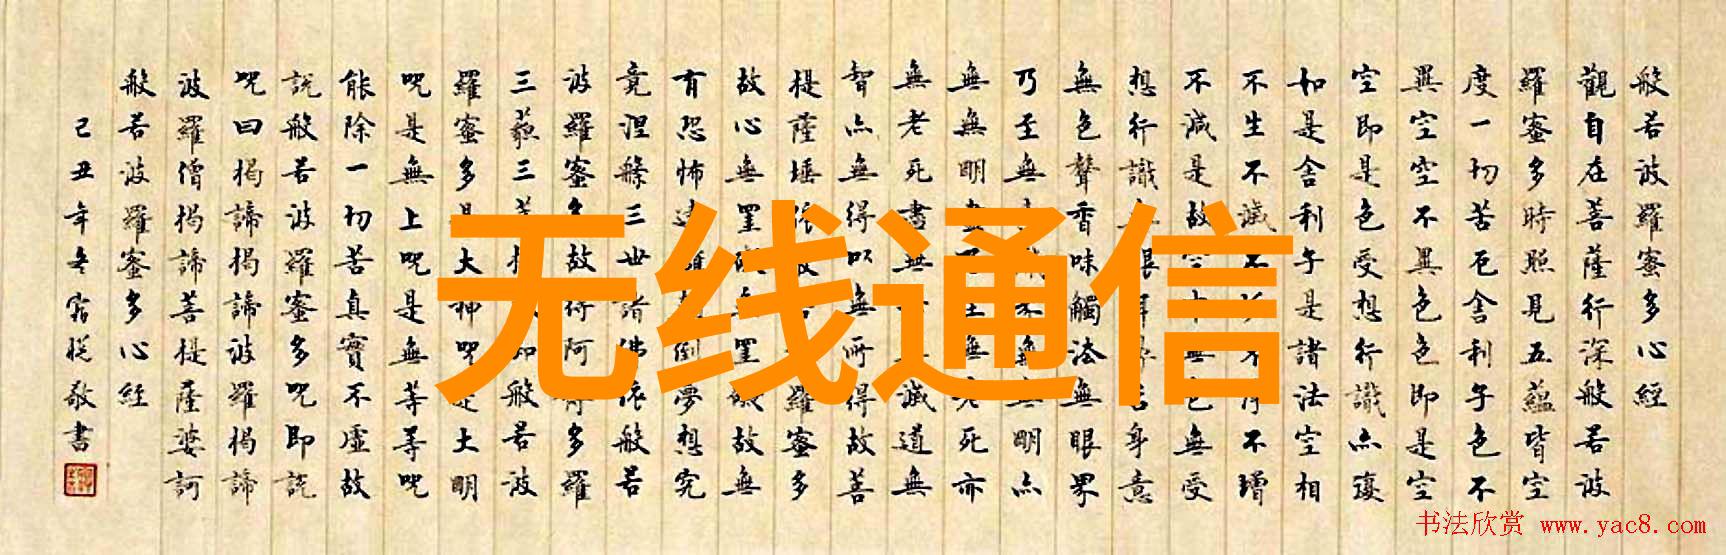 般若波羅蜜多心經
觀自在菩薩行深般若波
羅蜜多時照見五蘊皆空
度一切苦厄舍利子色不
異空空不異色色即是空
空即是色受想行識亦復
如是舍利子是諸法空相
不生不滅不不淨不增
不減是故空中無色無受
想行識無眼耳鼻舌身意
無色聲香味觸法無眼界
乃至無界無無明亦
無無明盡乃至無老死亦
無老死盡無滅道無
智亦無得以無所得故菩
提薩埵依般若羅蜜多
故心無罣礙無罣礙故無
有恐怖遠離倒夢想究
竟涅槃三世諸佛依般若
波羅蜜多故得阿耨多羅
三藐三菩提知般若波
羅蜜多是大神咒是大明
咒是無上咒是無等等咒
能除一切苦真實不虛故
說般若波羅蜜多咒即說
咒曰揭諦揭諦波羅揭諦
波羅僧揭諦菩提薩婆訶
般若波羅蜜多心經
己丑年冬敬書
无线通信
书法欣赏 www.yac8.com